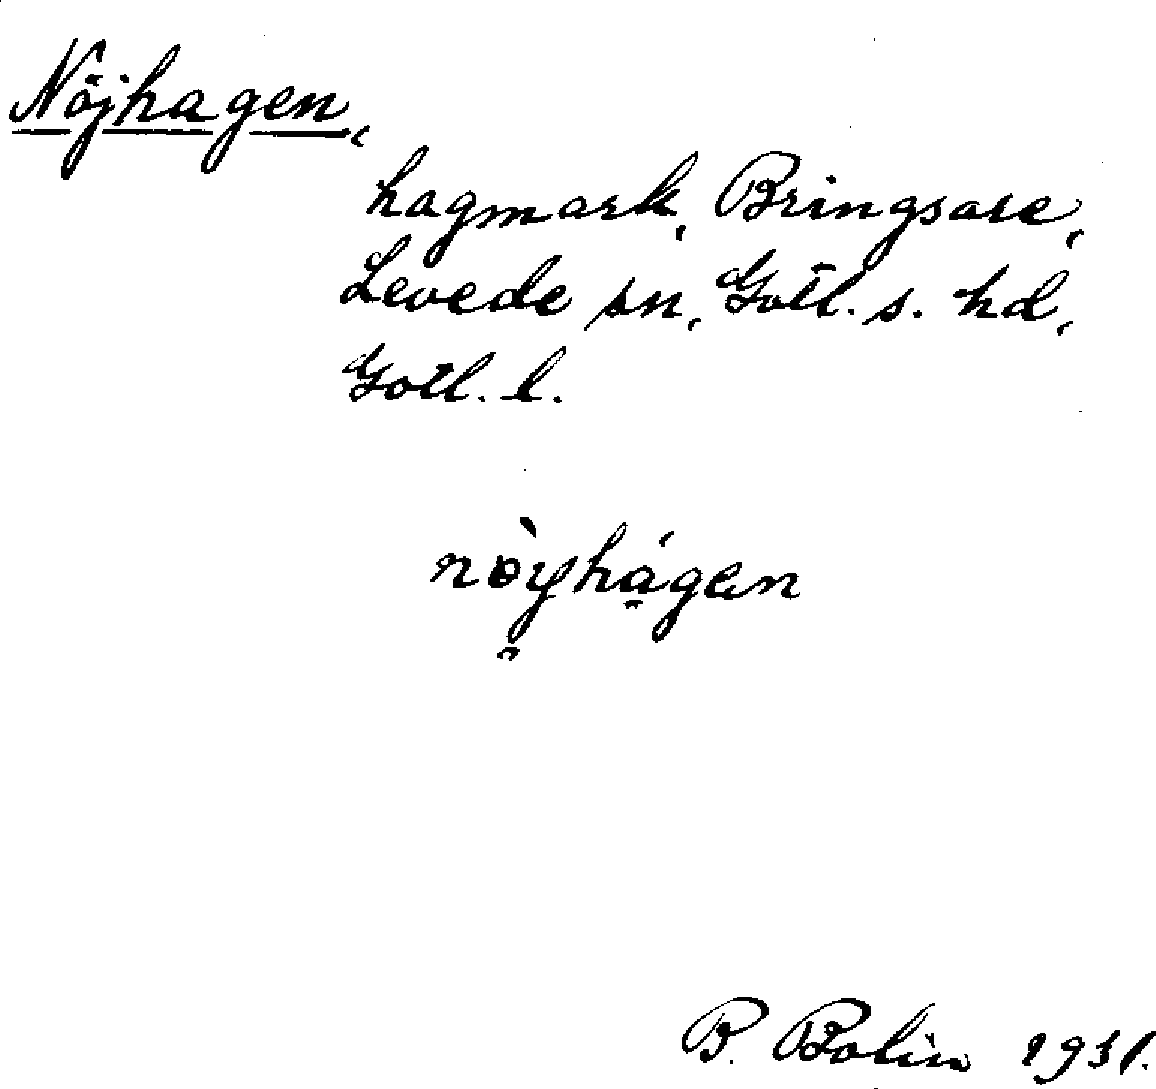 Nöjhagen,
hagmark, Bringsare,
Levede sn, Gotl. s. hd,
Gotl. l.
nòyhágan
B. Bolin 1931.